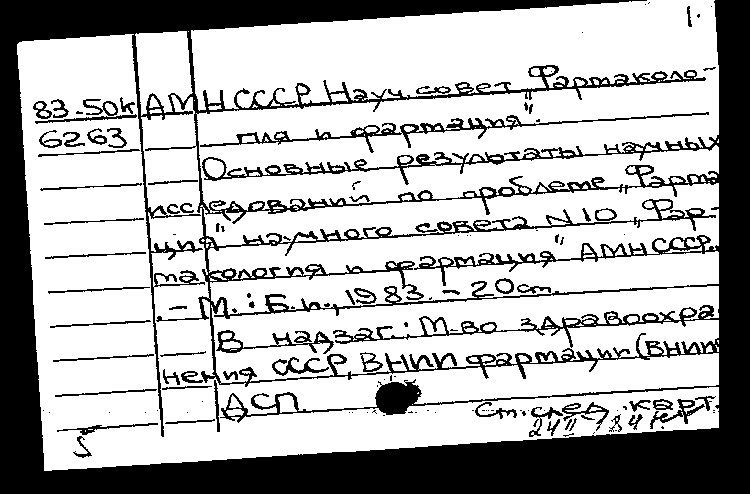 1.
83-50к АМН СССР. Науч. совет „Фармаколо-
6263 гия и фармация".
Основные результаты научных
исследований по проблеме „Фарма
ция" научного совета N10 „Фар-
макология и фармация" АМН СССР.
.- М.: Б.и., 1983. - 20 см.
В надзаг.: М-во здравоохра
нения СССР, ВНИИ фармации (ВНИИ
ДСП.
Ст. след. карт.
5